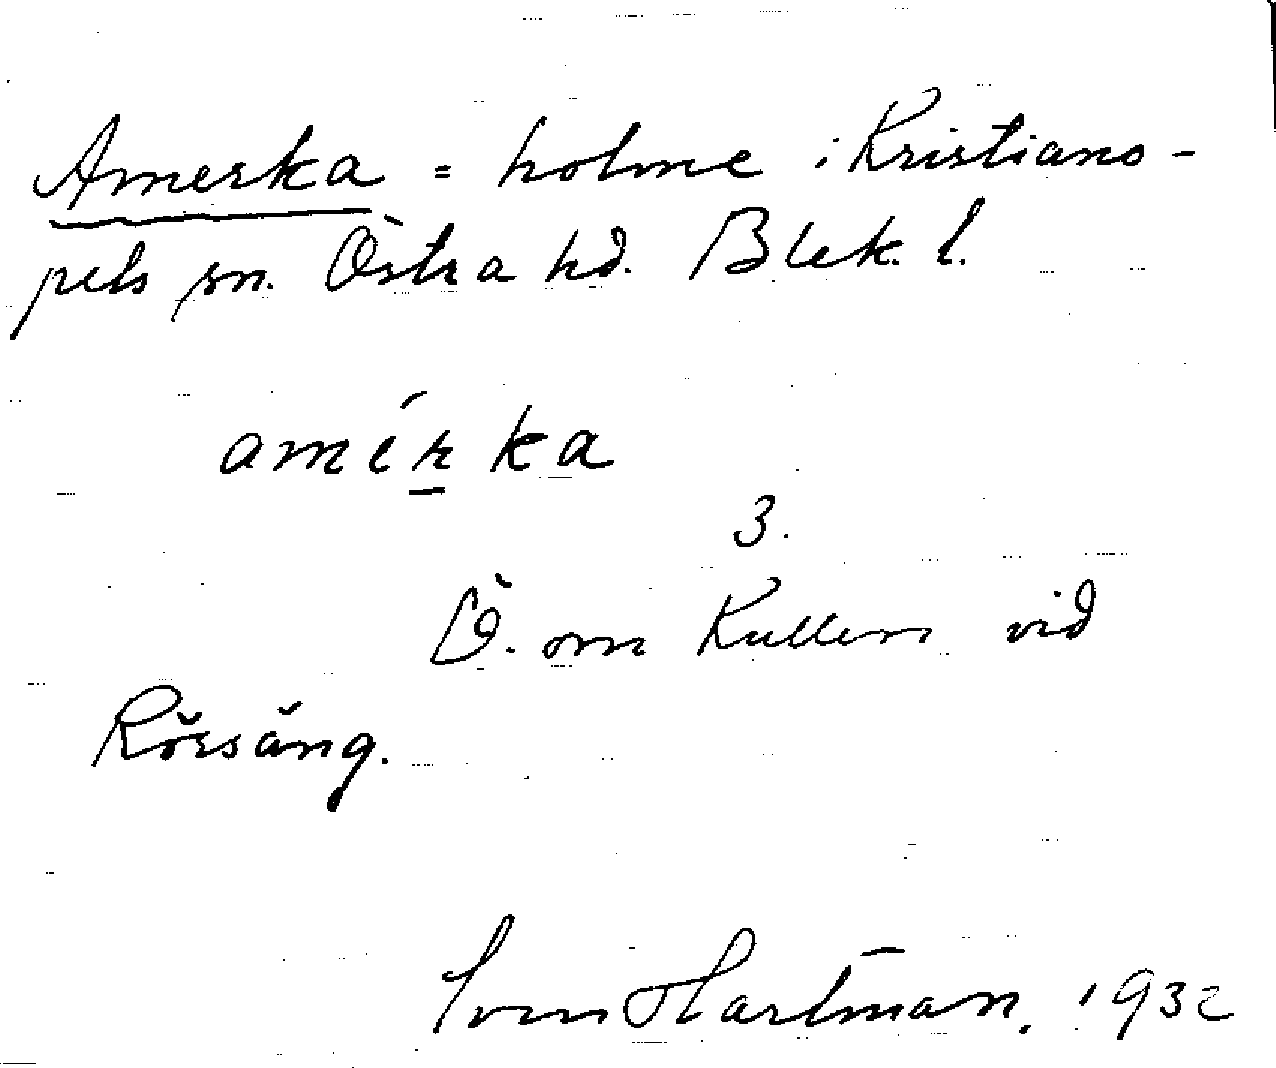 Amerka = holme i Kristiano-
pels sn. Östra hd. Blek. l.
amérka
3.
Ö. om Kullen vid
Rörsäng.
Sven Hartman, 1932